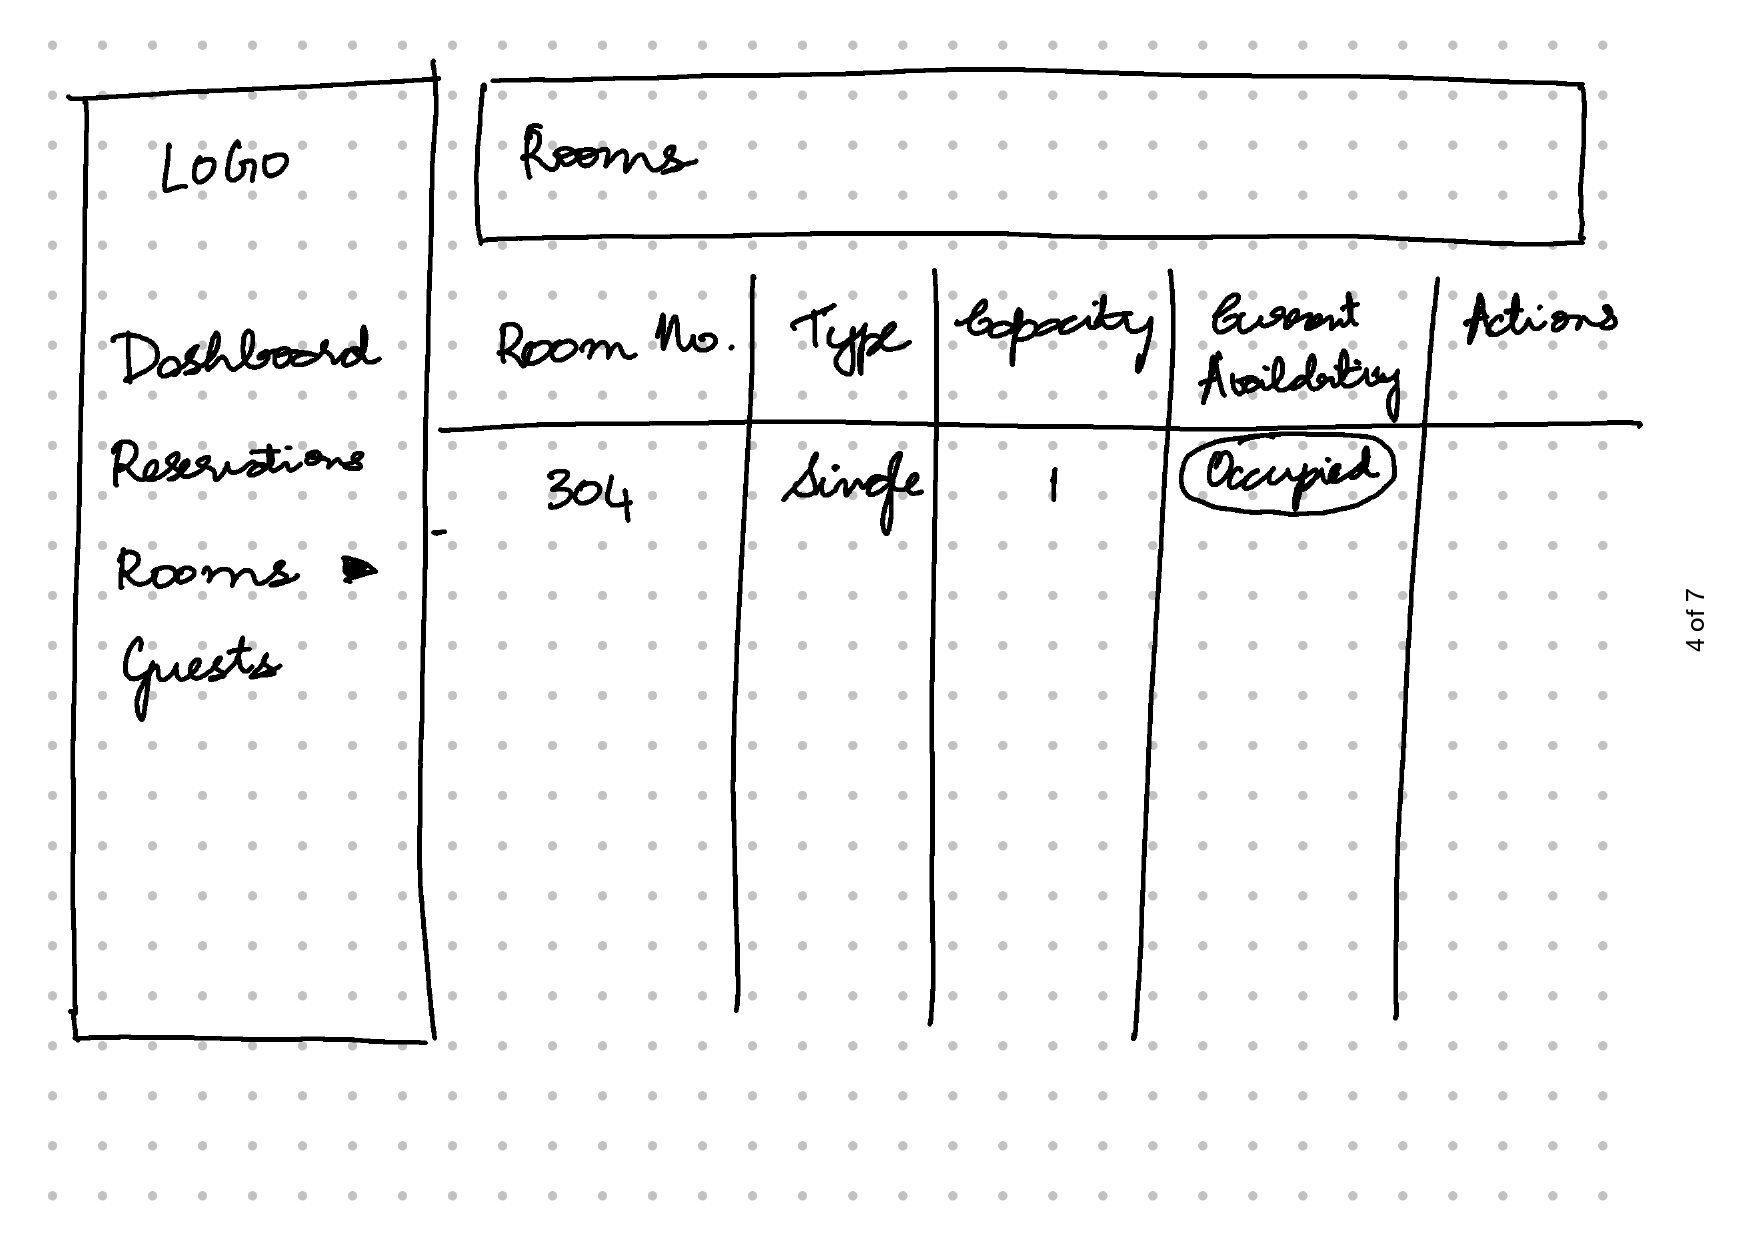 LOGO
Dashboard
Reservations
Rooms
Guests
Rooms
Room No.
Type
Capacity
Current
Availability
Actions
304
Single
1
Occupied
4 of 7